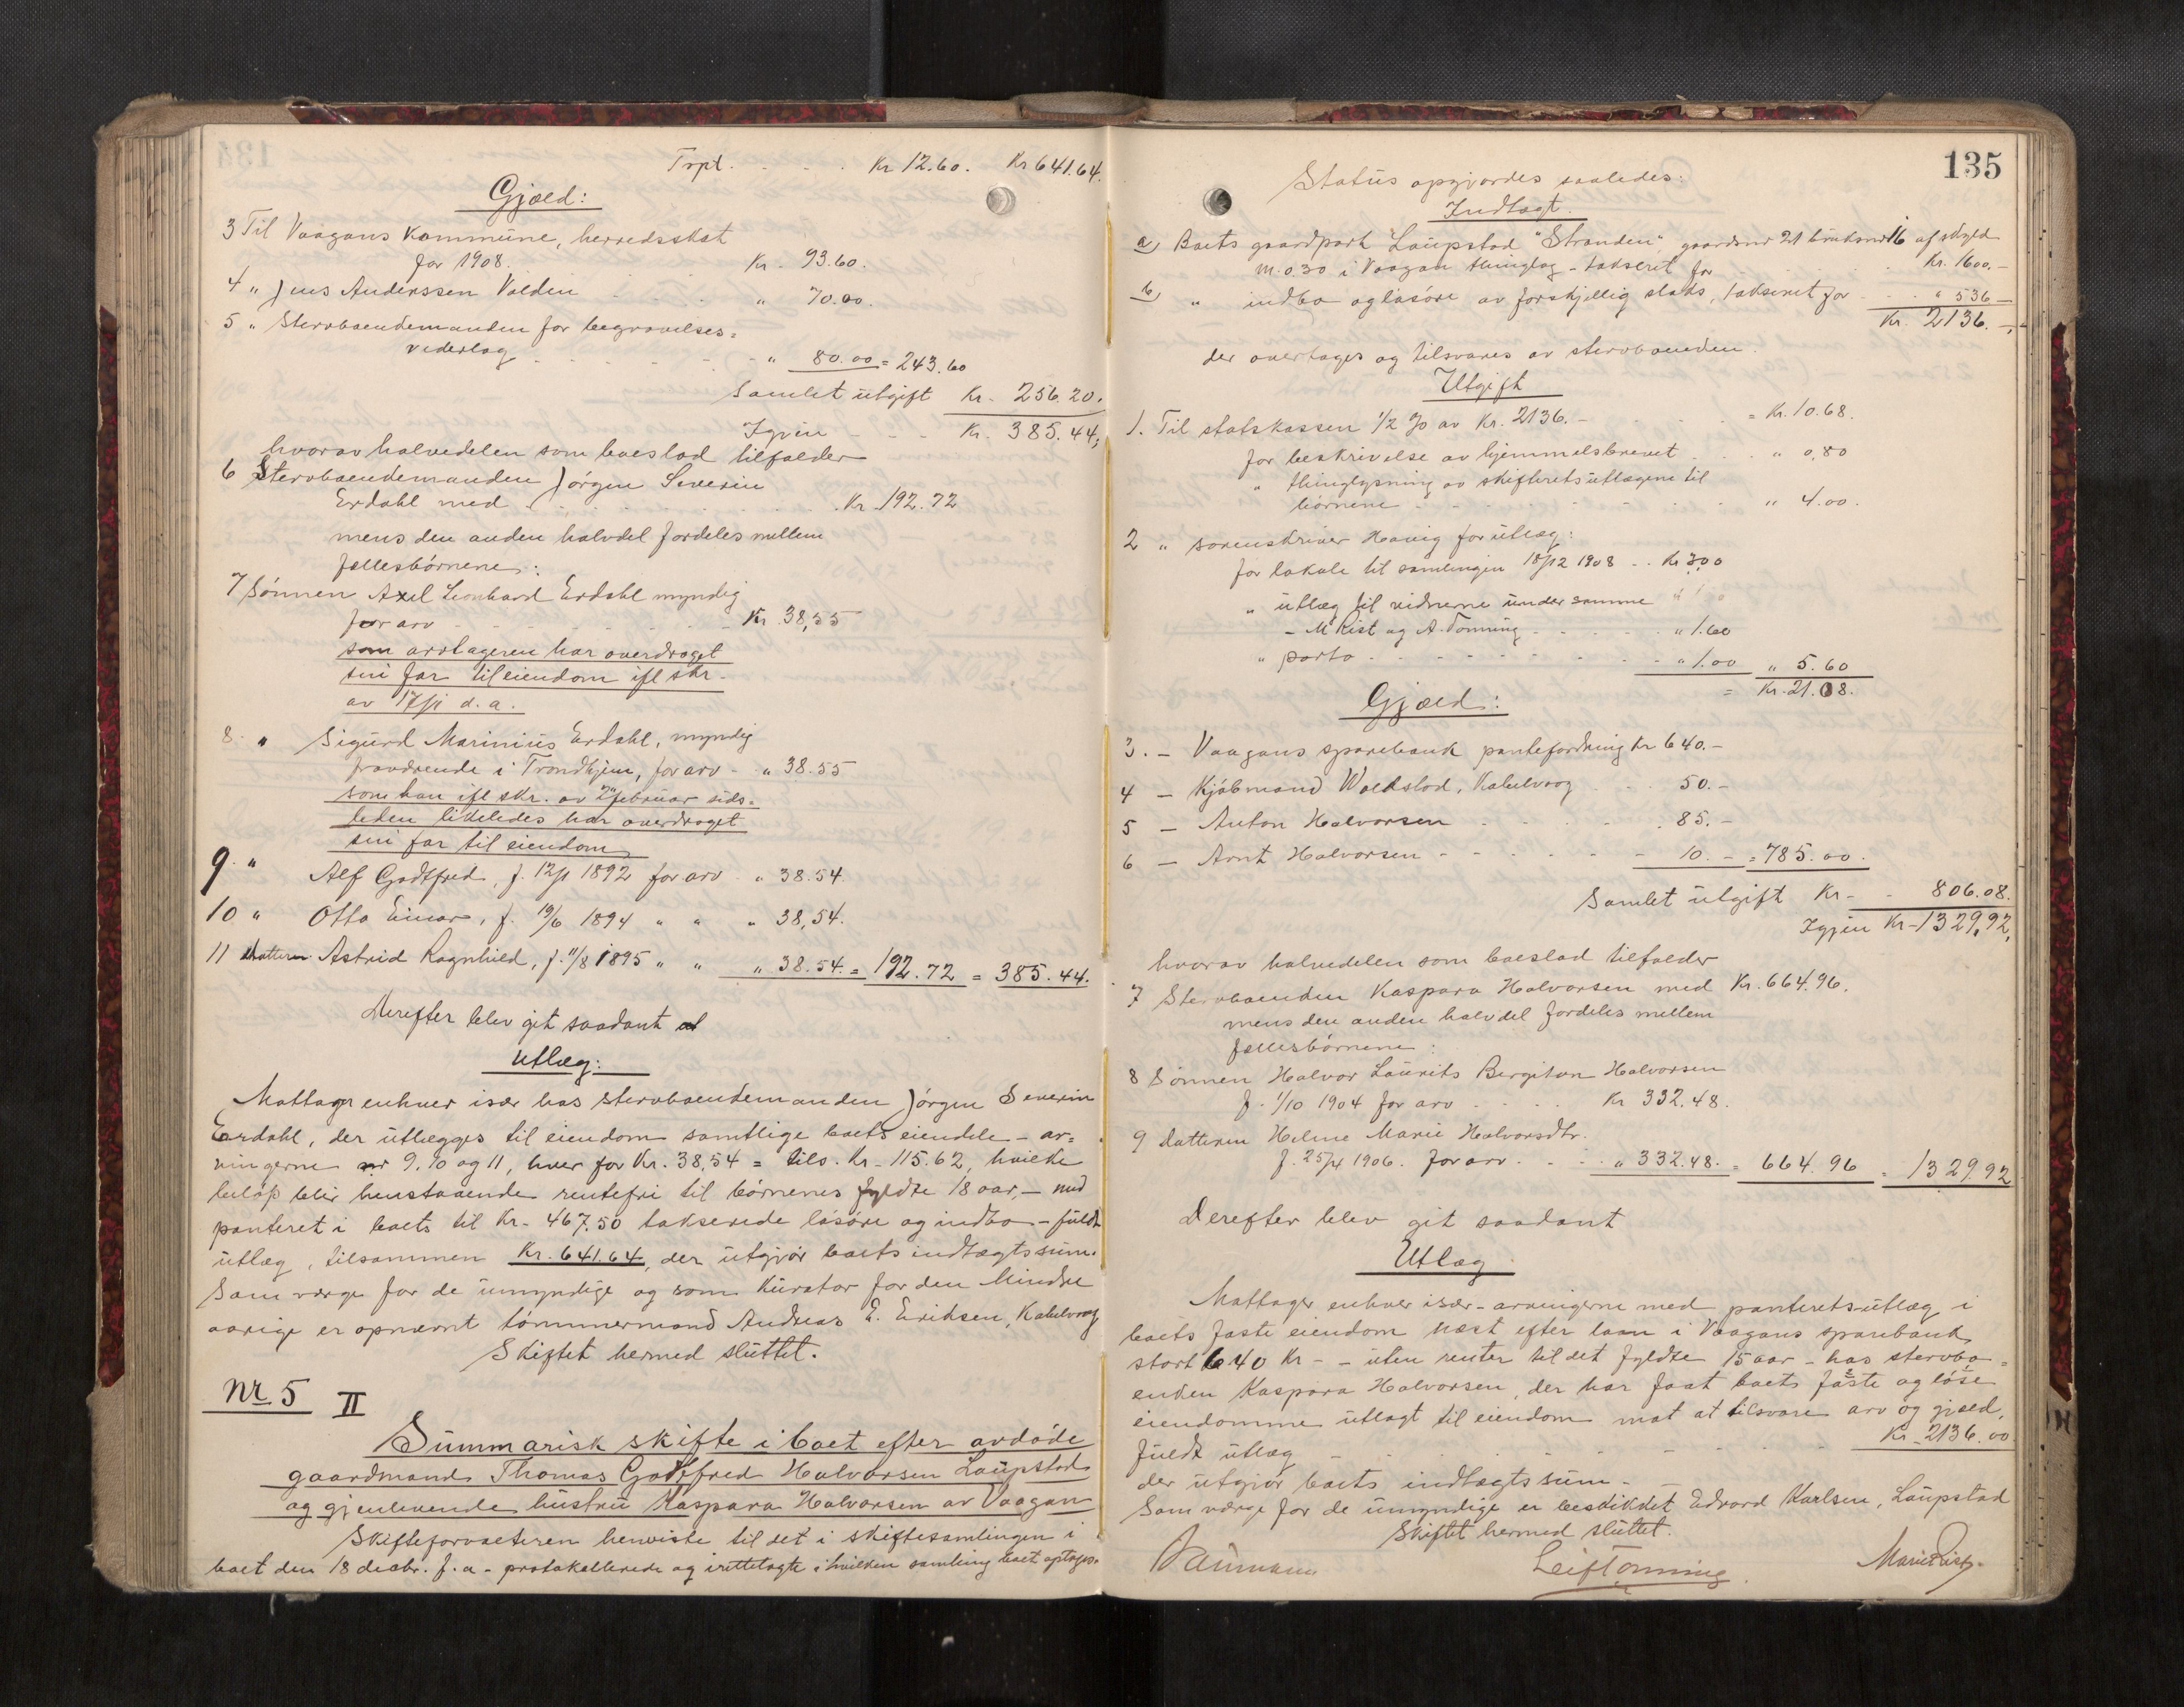 Trpt. - - - Kr 12.60. Kr 641.64.
Gjæld:
3 Til Vaagans kommune, herredsskat
for 1908. Kr. 93.60.
4 " Jens Anderssen Valdin - - - " 70.00.
5 " Stervboendemanden for begravelses=
vederlag - - - " 80.00 = 243.60
Samlet utgift Kr. 256.20.
Igjen - - - Kr. 385.44,
hvorav halvedelen som boeslod tilfalder
6 Stervboendemanden Jørgen Severin
Erdahl med - - - Kr. 192.72
mens den anden halvdel fordeles mellem
fællesbørnene:
7 Sønnen Axel Leonhard Erdahl myndig
for arv - - - Kr. 38,55
som arvtageren har overdraget
sin far til eiendom ifl skr.
av 17/1 d. a.
8. " Sigurd Marinius Erdahl, myndig
fraværende i Trondhjem, for arv - " 38.55
som han ifl skr. av 2 februar sids=
leden likeledes har overdraget
sin far til eiendom
9. " Alf Godtfred, f. 12/1 1892 for arv - " 38.54.
10 " Otto Einar, f. 19/6 1894 " " " 38,54.
11 datteren Astrid Ragnhild, f. 11/8 1895 " " " 38.54. = 192.72 = 385.44.
Derefter blev git saadant
Utlæg:
Mottager enhver især hos stervboendemanden Jørgen Severin
Eardahl, der utlægges til eiendom samtlige boets eiendele - ar=
vingerne nr 9, 10 og 11, hver for Kr. 38,54 = tils. Kr. 115.62, hvilke
beløp blir henstaaende rentefri til børnenes fyldte 18 aar, - med
panteret i boets til Kr. 467.50 takserede løsøre og indbo - fuldt
utlæg, tilsammen Kr. 641.64, der utgjør boets indtægtssum.
Som værge for de umyndige og som Kurator for den Mindre
aarige er opnævnt tømmermand Andreas E. Eriksen, Kabelvaag
Skiftet hermed sluttet.
Nr 5 II
Summarisk skifte i boet efter avdøde
gaardmand Thomas Godtfred Halvorsen Laupstad
og gjenlevende hustru Kaspara Halvorsen av Vaagan
Skifteforvalteren henviste til det i skiftesamlingen i
boet den 18 decbr. f. a. - protokollerede og irettelagte i hvilken samling boet optoges.
135
Status opgjordes saaledes:
Indtægt.
a) Boets gaardpart Laupstad "Stranden" gaardsnr 21 bruksnr 16 af skyld
m. 0.30 i Vaagan thinglag - takseret for - - Kr. 1600.-
b) " indbo og løsøre av forskjellig slags, takseret for - - " 536 -
Kr. 2136. -,
der overtages og tilsvares av stervboenden.
Utgift
1. Til statskassen 1/2 % av Kr. 2136. - - - - = Kr. 10.68.
for beskrivelse av hjemmelsbrevet - - " 0,80
" thinglysning av skifteretsutlægene til
børnene - - - " 4.00.
2 " sorenskriver Havig for utlæg:
for lokale til samlingen 18/12 1908 - - Kr 3,00
" utlæg til vidnerne under samme
- M Rist og A. Tonning - - - " 1.60
" porto - - - " 1.00 " 5.60
= Kr. 21.08.
Gjæld:
3. - Vaagans sparebank pantefordring Kr 640.-
4 - Kjøbmand Woldstad, Kabelvaag - - 50.-
5 - Anton Halvorsen - - - 85.-
6 - Arnt Halvorsen - - - 10. - = 785.00.
Samlet utgift Kr - - 806.08.
Igjen Kr - 1329,92,
hvorav halvedelen som boeslod tilfalder
7 Stervboenden Kaspara Halvorsen med Kr. 664.96.
mens den anden halvdel fordeles mellem
fællesbørnene:
8 Sønnen Halvor Laurits Bergiton Halvorsen
f. 1/10 1904 for arv - - - Kr 332.48.
9 datteren Helme Marie Halvorsdtr.
f. 25/4 1906. for arv - - - " 332.48. = 664.96 = 1329.92
Derefter blev git saadant
Utlæg
Mottager enhver især - arvingerne med panteretsutlæg i
boets faste eiendom næst efter laan i Vaagans sparebank
stort 640 Kr - - uten renter til det fyldte 15 aar - hos stervbo=
enden Kaspara Halvorsen, der har faat boets faste og løse
eiendomme utlagt til eiendom mot at tilsvare arv og gjæld,
fuldt utlæg - - - Kr. 2136.00
der utgjør boets indtægtssum. -
Som værge for de umyndige er beskikket Edvard Karlsen, Laupstad
Skiftet hermed sluttet.
Leif Tonning. Marie Rist.